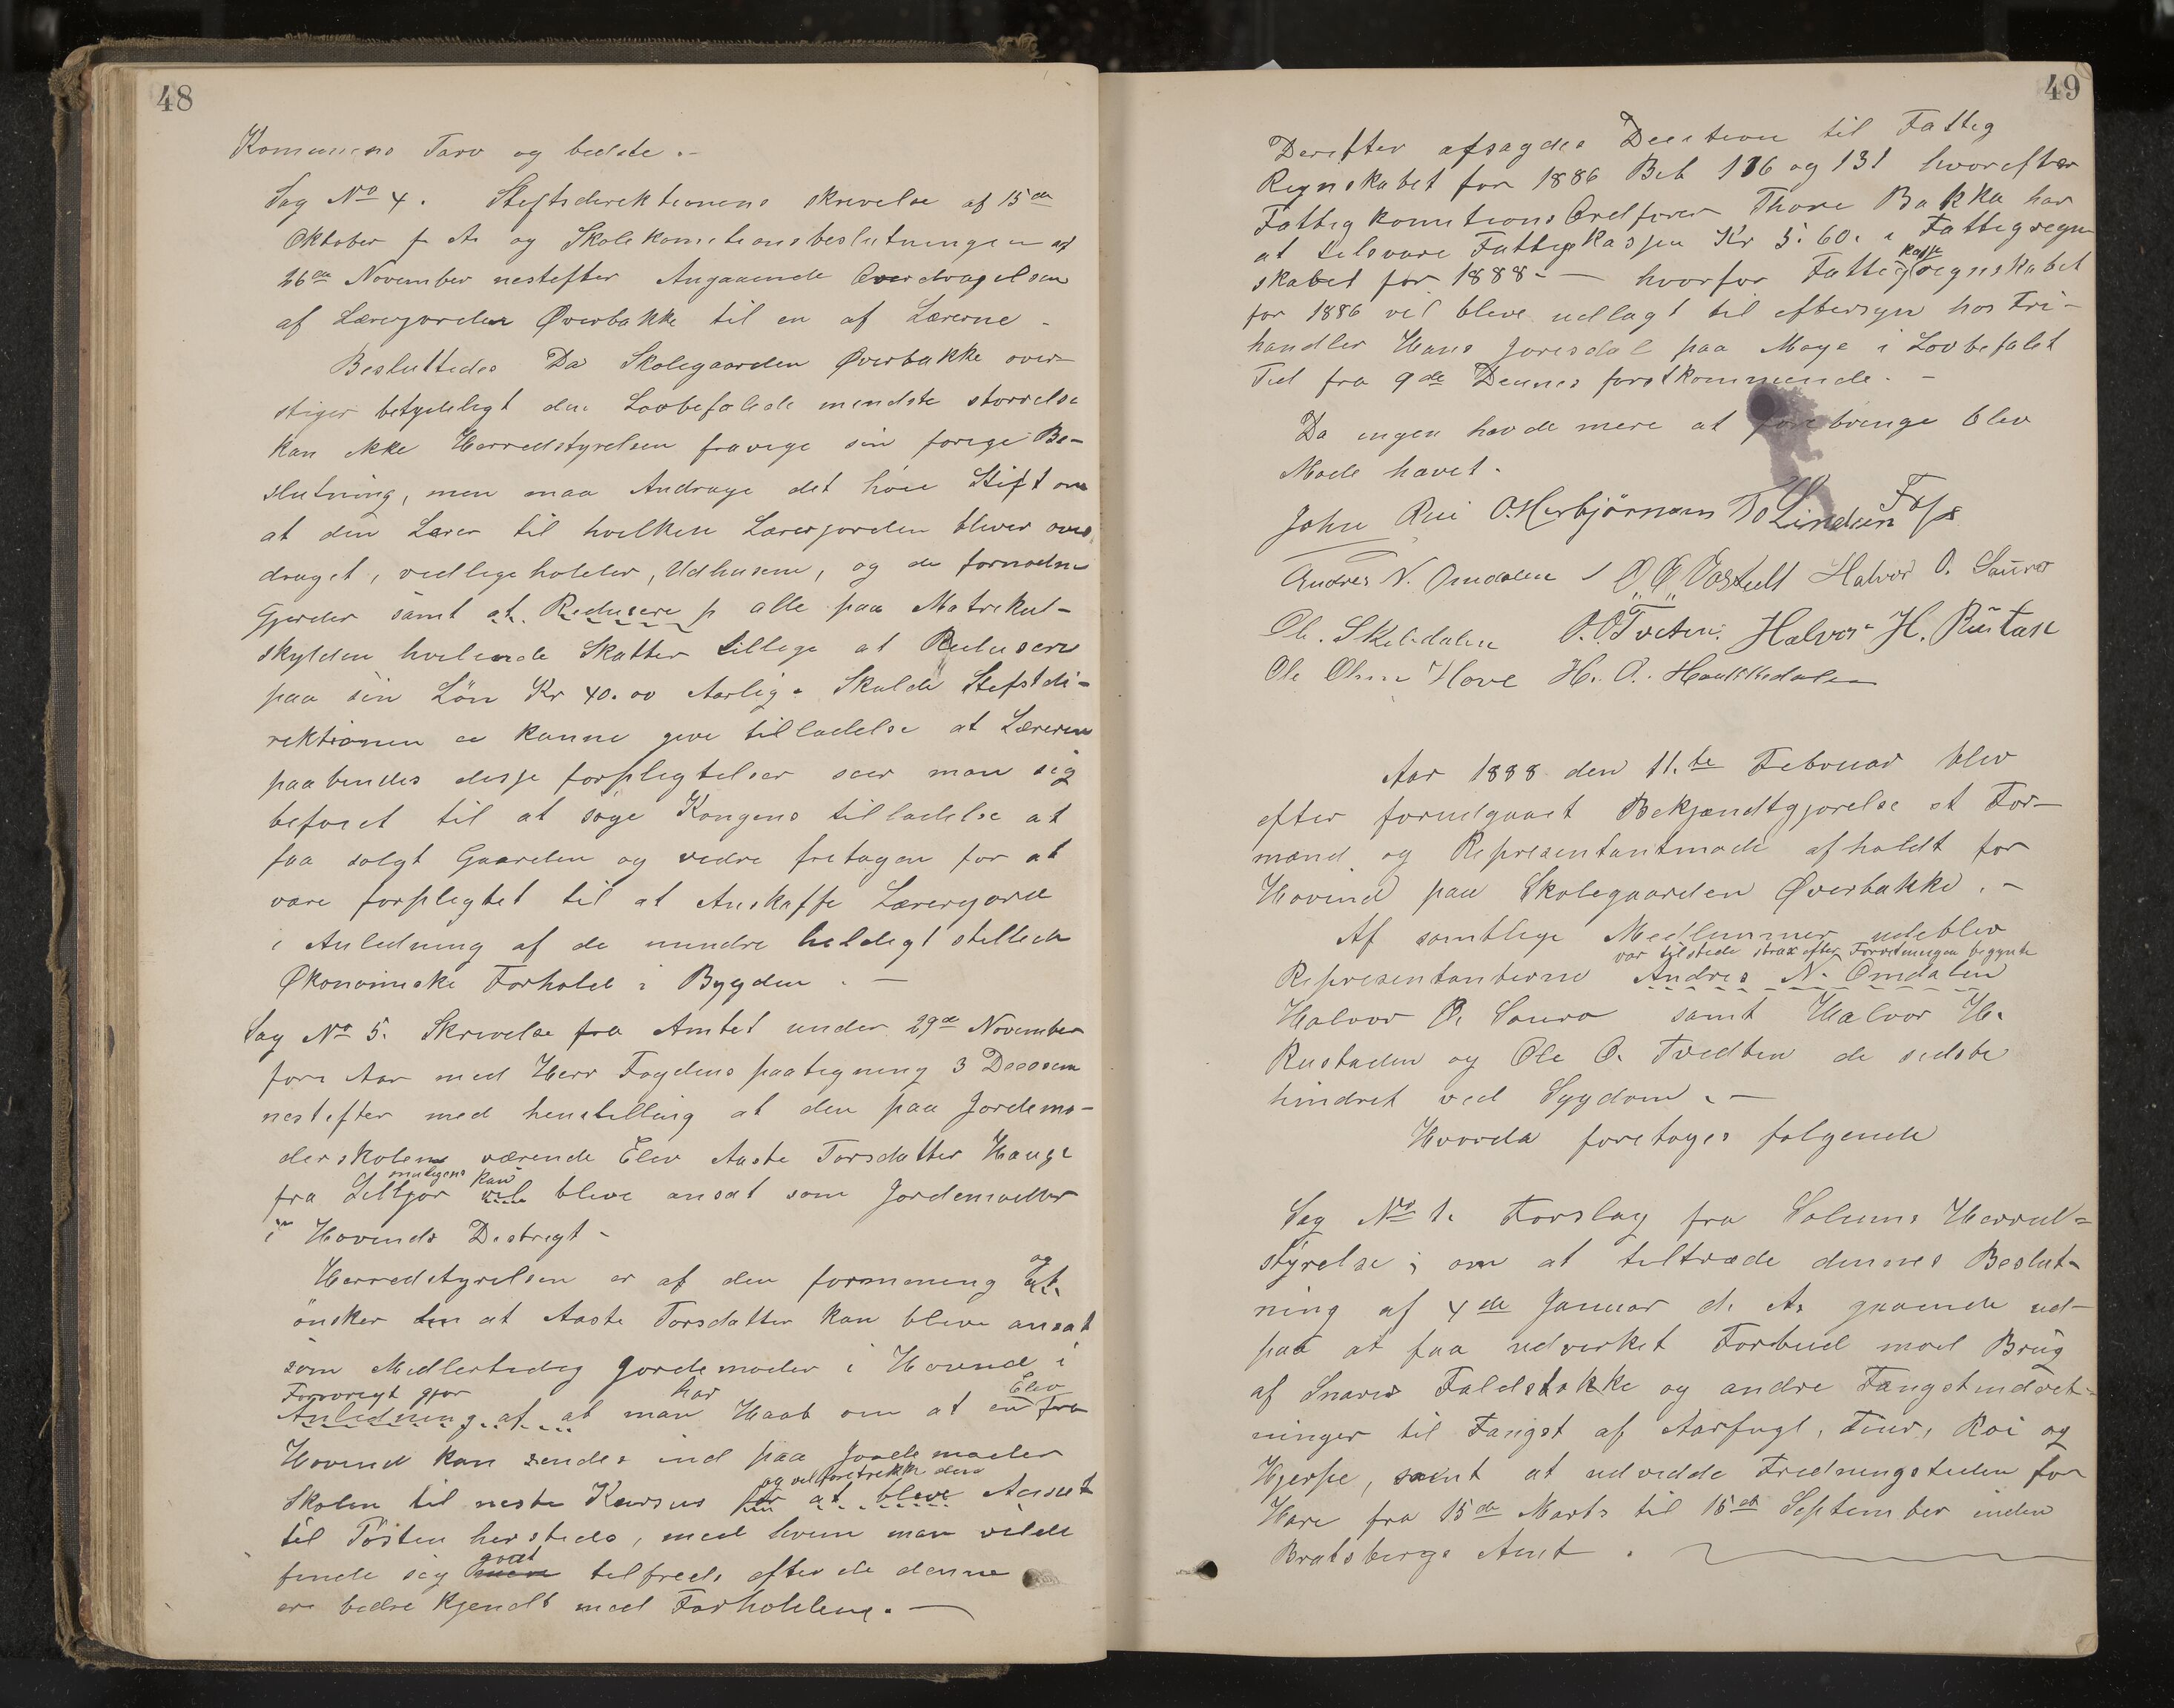 48
Kommunens Tarv og bedste.-
Sag No 4. Stiftsdirektionens skrivelse af 15de
Oktober f. A. og Skolekomitionsbeslutningen af
26de November nestefter Angaaende Overdragelsen
af Lærerjorden Øverbakke til en af Lærerne -
Besluttedes Da Skolegaarden Øverbakke over-
stiger betydeligt den Lovbefalede mindste storrelse
kan ikke Herredstyrelsen fravige sin forige Be-
slutning, men maa Andrage det höie Stift om
at den Lærer til hvilken Lærerjorden bliver over
draget, vedligeholder, Udhusene, og de fornødne
Gjerder samt at Redusere p alle paa Matrikul-
skylden hvilende Skatter tillige at Redusere
paa sin Lön Kr 40.00 Aarlig. Skulde Stifstdi-
rektionen ei kunne give tilladelse at Læreren
paabindes disse forpligtelser seer man sig
beföiet til at söge Kongens tilladelse at
faa solgt Gaarden og vedre fritagen for at
være forpligtet til at Anskaffe Lærerjord
i Anledning af de mindre heldigt stillede
Økonomiske Forhold i Bygden. -
Sag No 5. Skrivelse fra Amtet under 29de November
fori Aar med Herr Fogdens paategning 3 Decem
nestefter med henstilling at den paa Jordemo-
derskolen værende Elev Aaste Torsdatter Hauge
muligens kan
fra Litljor vil blive ansat som Jordemoder
i Hovinds Destrigt -
og
Herredstyrelsen er af den formening at
önsker den at Aaste Torsdatter kan blive ansat
som Midlertidig Jordemoder i Hovind i
Forøvrigt gjør har Elev
Anledning af at man Haab om at en fra
Hovind kan sendes ind paa Jordemoder
og vil foretrekke den
Skolen til neste Kursus for at blive Ansat
til Posten hersteds, med hvem man vilde
godt
finde sig mere tilfreds efter de denne
er bedre kjendt med Forholdene. -
49
Derefter afsagdes Decition til Fattig
Regnskabet for 1886 Beb 116 og 131 hvorefter
Fattigkomitions Ordfører Thore Bakka har
at tilsvare Fattigkassen Kr 5.60. i Fattigregn
kasse
skabet for 1888 - hvorfor Fattigregnskabet
for 1886 vil blive udlagt til eftersyn hos Fri-
handler Hans Joresdal paa Moge i Lovbefalet
Tid fra 9de Dennes forstkommende. -
Da ingen havde mere at forebringe blev
Mode hævet.
John Rui O. Herbjörnsen T O Lindsun
Andres N. Omdalen Halvor O. Sauro
Ol. Skeisdalen O.O Tveten. Halvor H. Rustan
Ole Olsen Hove H. O. Haukkedalen
Aar 1888 den 11.te Februar blev
efter forudgaaet Bekjendtgjorelse et For-
mænd og Representantmode afholdt for
Hovind paa Skolegaarden Øverbakke. -
Af samtlige Medlemmer udeblev
var tilstede strax efter Forretningen begynte
Representanterne Andres N. Omdalen
Halvor O. Sauro samt Halvor H.
Rustaden og Ole O. Tvedten de sidste
hindret ved Sygdom. -
Hvorda foretoges folgende
Sag No 1. Forslag fra Solums Herred-
styrelse; om at tiltræde dennes Beslut-
ning af 4de Januar d. A. gaaende ud-
paa at faa udvirket Forbud mod Brug
af Snarer Faldstokke og andre Fangstindret-
ninger til Fangst af Aarfugl, Tiur, Roi og
Hjerpe, samt at udvidde Fredningstiden for
Hare fra 15de Marts til 15de September inden
Bratsbergs Amt.